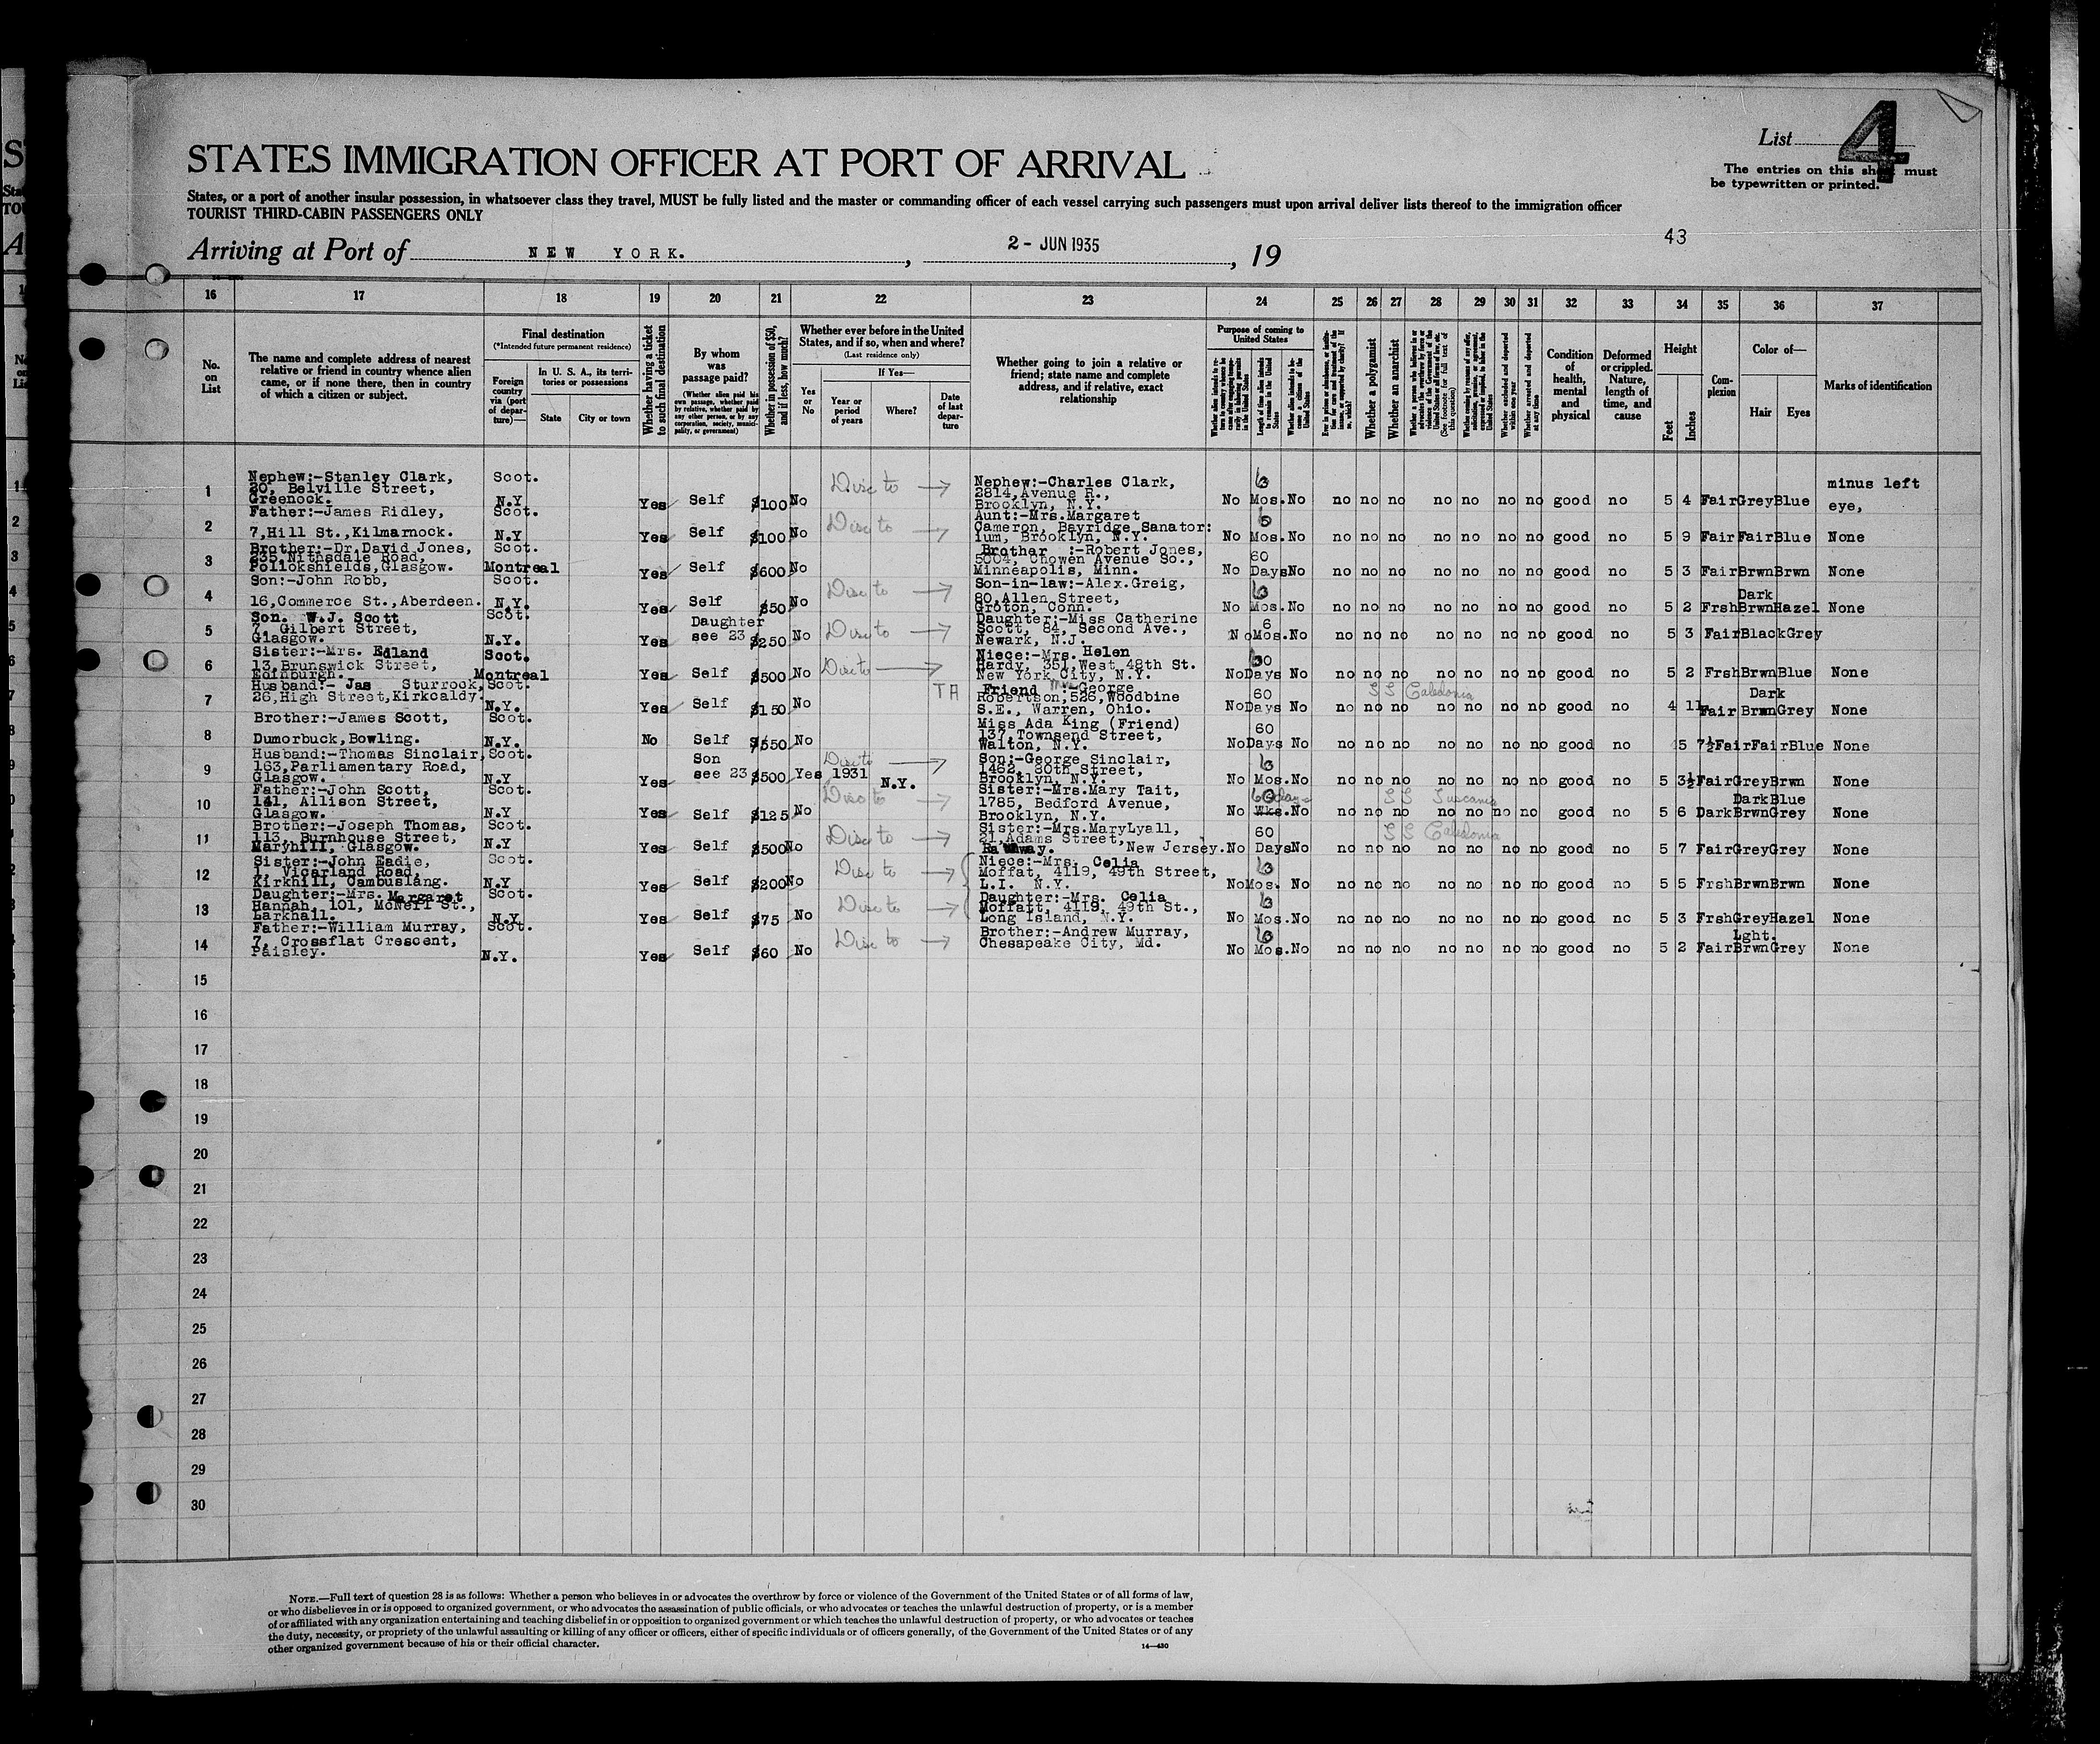 STATES IMMIGRATION OFFICER AT PORT OF ARRIVAL
List 4
The entries on this sheet must
be typewritten or printed.
States, or a port of another insular possession, in whatsoever class they travel, MUST be fully listed and the master or commanding officer of each vessel carrying such passengers must upon arrival deliver lists thereof to the immigration officer
TOURIST THIRD-CABIN PASSENGERS ONLY
43
Arriving at Port of NEW YORK. , 2 - JUN 1935 , 19
16 17 18 19 20 21 22 23 24 25 26 27 28 29 30 31 32 33 34 35 36 37
No. on List
The name and complete address of nearest
relative or friend in country whence alien
came, or if none there, then in country
of which a citizen or subject.
Final destination
(*Intended future permanent residence)
Foreign country via (port of departure)—
In U. S. A., its territories or possessions
State
City or town
Whether having a ticket to such final destination
By whom was passage paid?
(Whether alien paid his own passage, whether paid by relative, whether paid by any other person, or by any corporation, society, municipality, or government)
Whether in possession of $50, and if less, how much?
Whether ever before in the United
States, and if so, when and where?
(Last residence only)
Yes or No
If Yes—
Year or period of years
Where?
Date of last departure
Whether going to join a relative or
friend; state name and complete
address, and if relative, exact
relationship
Purpose of coming to United States
Length of time alien intends to remain in the United States
Whether alien intends to become a citizen of the United States
Whether a polygamist
Whether an anarchist
Condition of health, mental and physical
Deformed or crippled. Nature, length of time, and cause
Height
Feet
Inches
Complexion
Color of—
Hair
Eyes
Marks of identification
1 Nephew:-Stanley Clark, 20, Belville Street, Greenock. Scot. N.Y Yes Self $100 No Disc to → Nephew:-Charles Clark, 2814,Avenue R., Brooklyn, N.Y. No 6 Mos. No no no no no no no no good no 5 4 Fair Grey Blue minus left eye,
2 Father:-James Ridley, 7,Hill St.,Kilmarnock. Scot. N.Y Yes Self $100 No Disc to → Aunt:-Mrs.Margaret Cameron, Bayridge Sanator: ium, Brooklyn, N.Y. No 6 Mos. No no no no no no no no good no 5 9 Fair Fair Blue None
3 Brother:-Dr.David Jones, 235,Nithsdale Road, Pollokshields,Glasgow. Scot. Montreal Yes Self $600 No Brother :-Robert Jones, 5004, Chowen Avenue So., Minneapolis, Minn. No 60 Days No no no no no no no no good no 5 3 Fair Brwn Brwn None
4 Son:-John Robb, 16,Commerce St.,Aberdeen. Scot. N.Y. Yes Self $50 No Disc to → Son-in-law:-Alex.Greig, 80,Allen Street, Groton, Conn. No 6 Mos. No no no no no no no no good no 5 2 Frsh Dark Brwn Hazel None
5 Son. W.J. Scott 7, Gilbert Street, Glasgow. Scot. N.Y. Yes Daughter see 23 $250 No Disc to → Daughter:-Miss Catherine Scott, 84, Second Ave., Newark, N.J. No 6 Mos. No no no no no no no no good no 5 3 Fair Black Grey
6 Sister:-Mrs. Edland 13,Brunswick Street, Edinburgh. Scot. Montreal Yes Self $500 No Disc to → Niece:-Mrs. Helen Hardy, 351,West 48th St. New York City, N.Y. No 60 Days No no no no no no no no good no 5 2 Frsh Brwn Blue None
7 Husband:- Jas Sturrock, 26,High Street,Kirkcaldy. Scot. N.Y. Yes Self $150 No TA Friend Mrs :-George Robertson,526,Woodbine S.E., Warren, Ohio. No 60 Days No SS Caledonia no no no no no no no good no 4 11 Fair Dark Brwn Grey None
8 Brother:-James Scott, Dumorbuck,Bowling. Scot. N.Y. No Self $550 No Miss Ada King (Friend) 137,Townsend Street, Walton, N.Y. No 60 Days No no no no no no no no good no 5 7½ Fair Fair Blue None
9 Husband:-Thomas Sinclair, 163,Parliamentary Road, Glasgow. Scot. N.Y Yes Son see 23 $500 Yes 1931 N.Y. Disc to → Son:-George Sinclair, 1462, 80th Street, Brooklyn, N.Y. No 6 Mos. No no no no no no no no good no 5 3½ Fair Grey Brwn None
10 Father:-John Scott, 141, Allison Street, Glasgow. Scot. N.Y Yes Self $125 No Disc to → Sister:-Mrs.Mary Tait, 1785, Bedford Avenue, Brooklyn, N.Y. No 60 days Wks. No SS Tuscania no no no no no no no good no 5 6 Dark Dark Brwn Blue Grey None
11 Brother:-Joseph Thomas, 113, Burnhouse Street, Maryhill, Glasgow. Scot. N.Y Yes Self $500 No Disc to → Sister:-Mrs.MaryLyall, 21,Adams Street, Rahway. New Jersey. No 60 Days No SS Caledonia no no no no no no no good no 5 7 Fair Grey Grey None
12 Sister:-John Eadie, 1, Vicarland Road, Kirkhill, Cambuslang. Scot. N.Y Yes Self $200 No Disc to → Niece:-Mrs. Celia Moffat, 4119, 49th Street, L.I. N.Y. No 6 Mos. No no no no no no no no good no 5 5 Frsh Brwn Brwn None
13 Daughter:-Mrs. Margaret Hannah, 101, McNeil St., Larkhall. Scot. N.Y Yes Self $75 No Disc to → Daughter:-Mrs. Celia Moffatt, 4119, 49th St., Long Island, N.Y. No 6 Mos. No no no no no no no no good no 5 3 Frsh Grey Hazel None
14 Father:-William Murray, 7, Crossflat Crescent, Paisley. Scot. N.Y. Yes Self $60 No Disc to → Brother:-Andrew Murray, Chesapeake City, Md. No 6 Mos. No no no no no no no no good no 5 2 Fair Lght. Brwn Grey None
15
16
17
18
19
20
21
22
23
24
25
26
27
28
29
30
NOTE.—Full text of question 28 is as follows: Whether a person who believes in or advocates the overthrow by force or violence of the Government of the United States or of all forms of law,
or who disbelieves in or is opposed to organized government, or who advocates the assassination of public officials, or who advocates or teaches the unlawful destruction of property, or is a member
of or affiliated with any organization entertaining and teaching disbelief in or opposition to organized government or which teaches the unlawful destruction of property, or who advocates or teaches
the duty, necessity, or propriety of the unlawful assaulting or killing of any officer or officers, either of specific individuals or of officers generally, of the Government of the United States or of any
other organized government because of his or their official character.
14—430